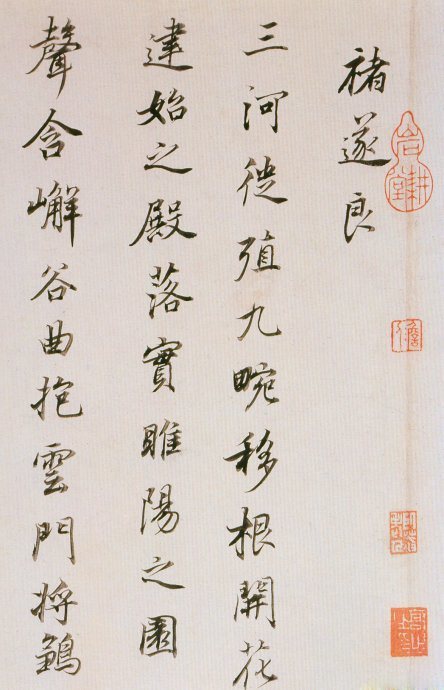 褚遂良
三河徙殖九畹移根開花
建始之殿落實睢陽之園
聲含嶰谷曲抱雲門将鶵